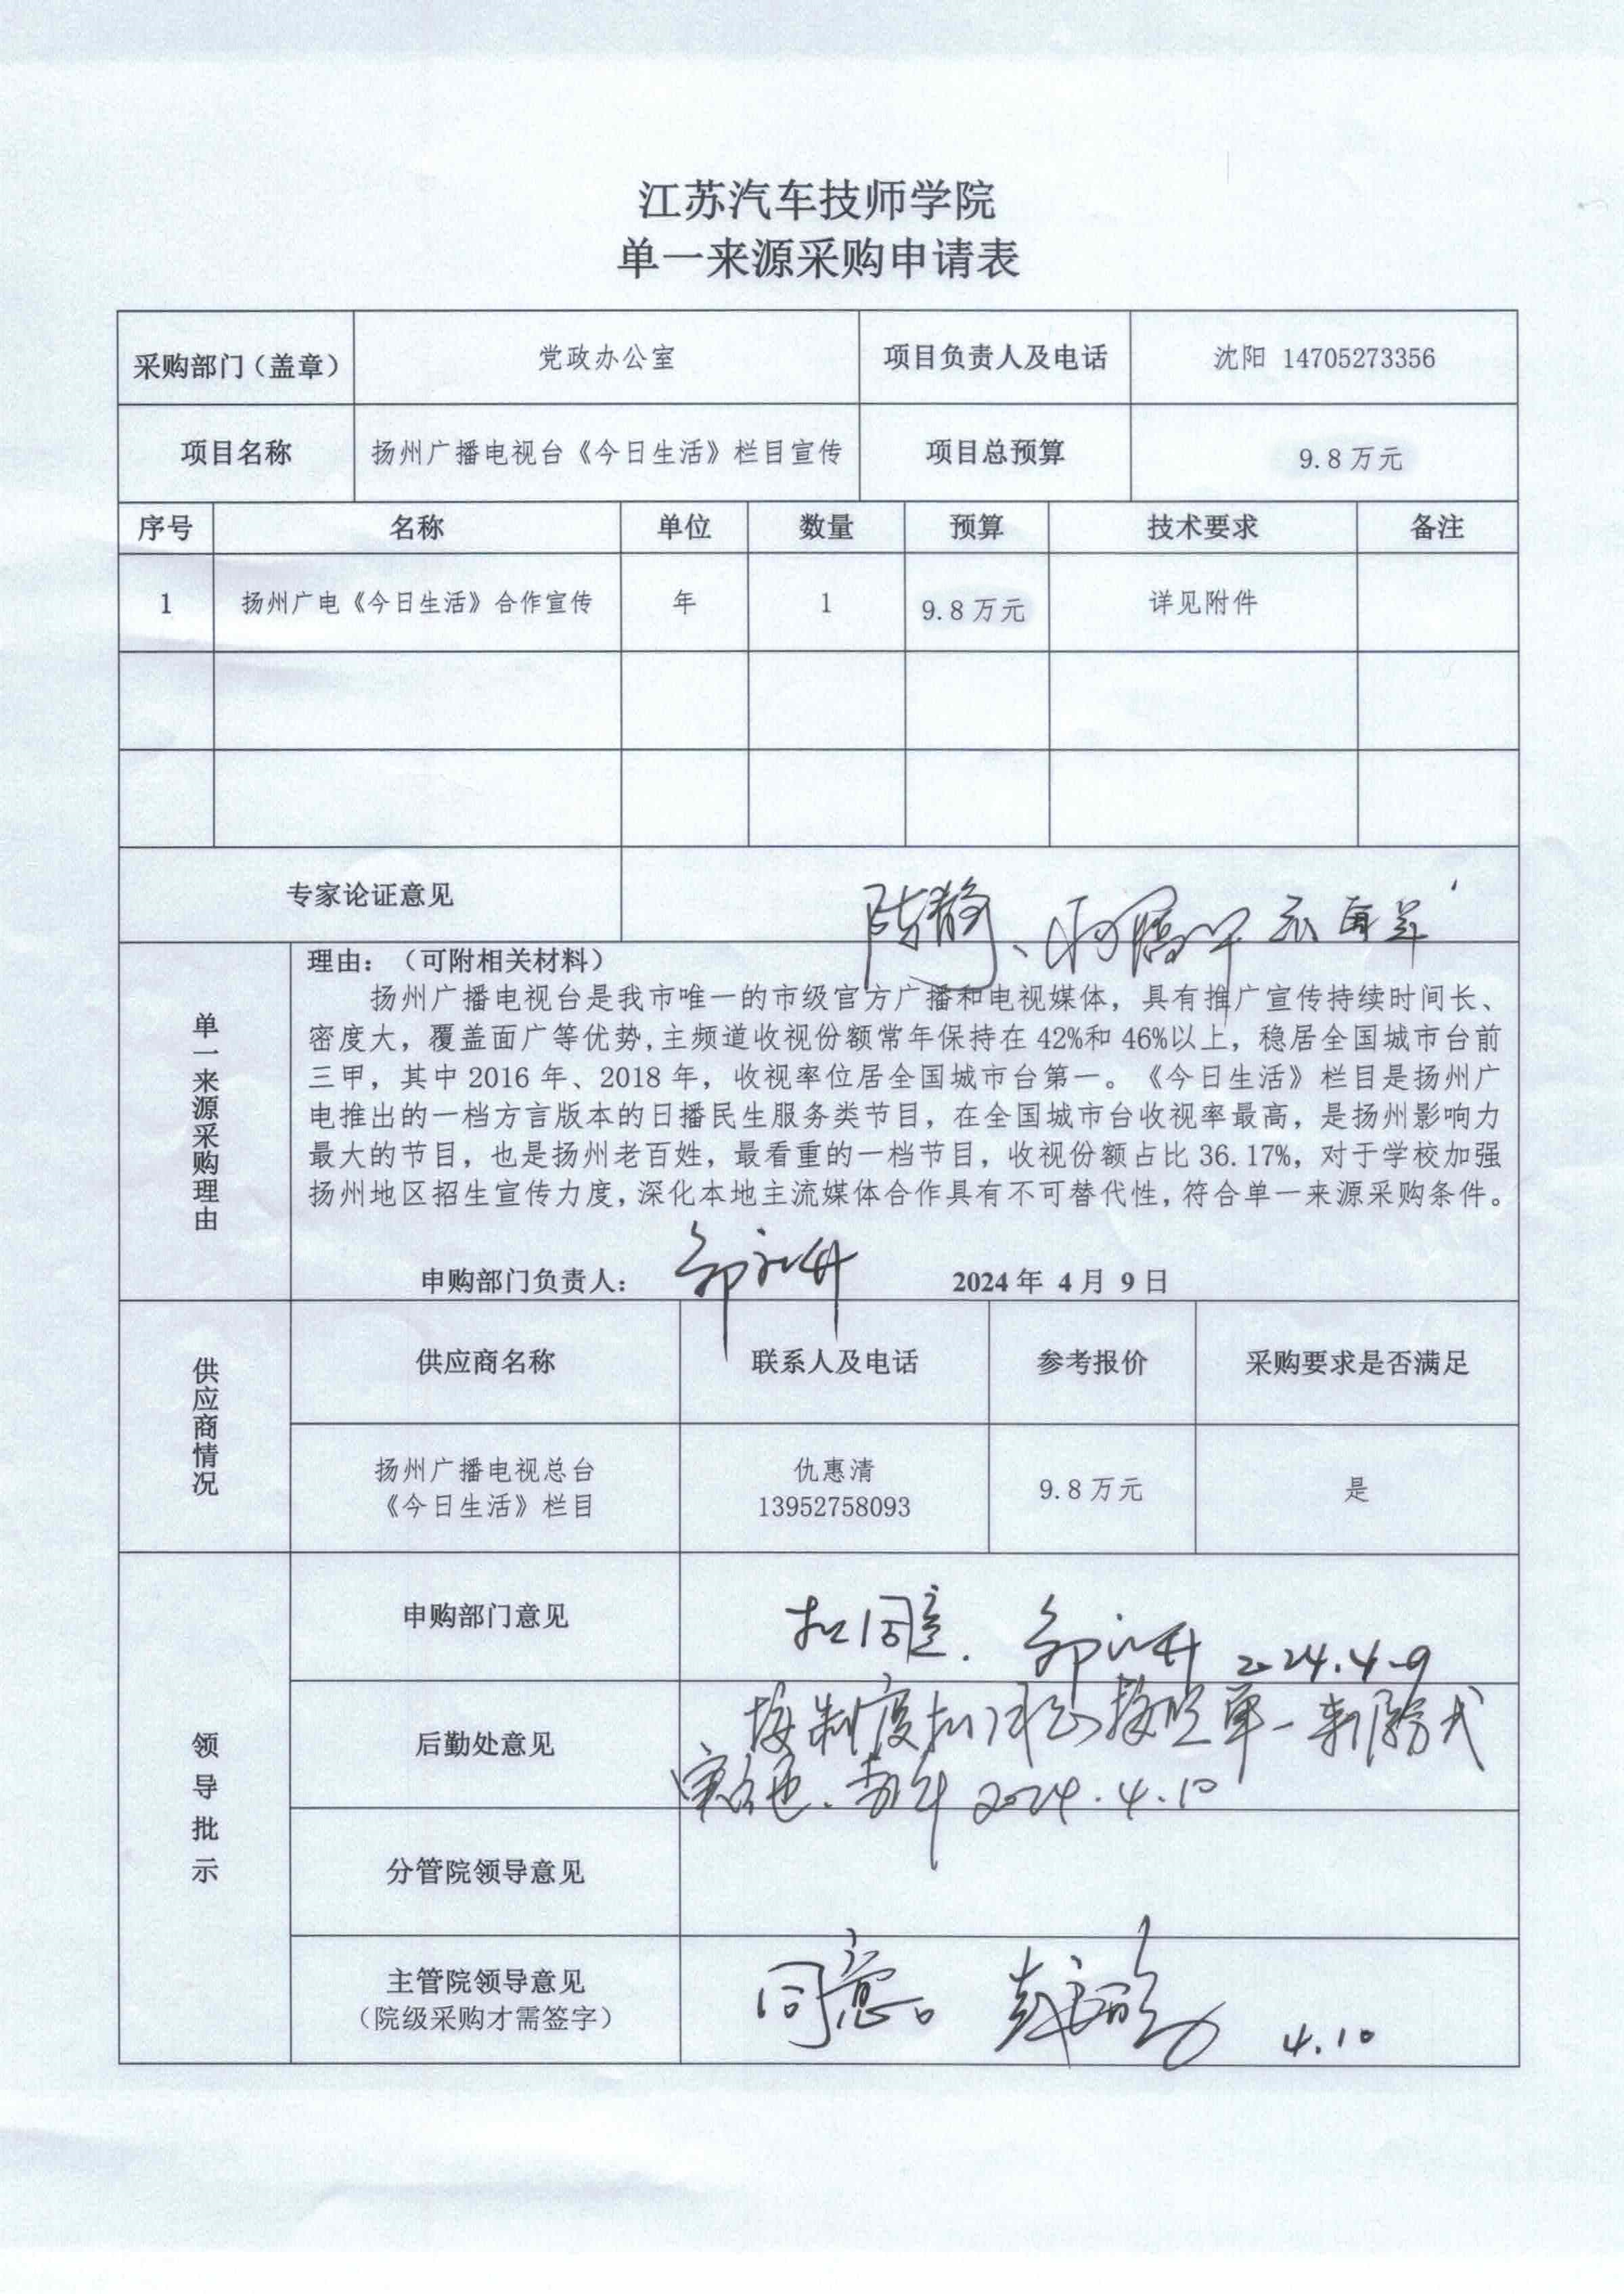 江苏汽车技师学院
单一来源采购申请表
采购部门（盖章） 党政办公室 项目负责人及电话 沈阳 14705273356
项目名称 扬州广播电视台《今日生活》栏目宣传 项目总预算 9.8万元
序号 名称 单位 数量 预算 技术要求 备注
1 扬州广电《今日生活》合作宣传 年 1 9.8万元 详见附件
专家论证意见 陈静、
单一来源采购理由
理由：（可附相关材料）
扬州广播电视台是我市唯一的市级官方广播和电视媒体，具有推广宣传持续时间长、
密度大，覆盖面广等优势,主频道收视份额常年保持在 42%和 46%以上，稳居全国城市台前
三甲，其中 2016 年、2018 年，收视率位居全国城市台第一。《今日生活》栏目是扬州广
电推出的一档方言版本的日播民生服务类节目，在全国城市台收视率最高，是扬州影响力
最大的节目，也是扬州老百姓，最看重的一档节目，收视份额占比 36.17%，对于学校加强
扬州地区招生宣传力度，深化本地主流媒体合作具有不可替代性，符合单一来源采购条件。
申购部门负责人： 2024 年 4 月 9 日
供应商情况
供应商名称 联系人及电话 参考报价 采购要求是否满足
扬州广播电视总台 仇惠清
《今日生活》栏目 13952758093 9.8万元 是
领导批示
申购部门意见 拟同意. 2024.4.9
后勤处意见 按制度 按照单一来源方式
实施. 2024.4.10
分管院领导意见
主管院领导意见 同意。 4.10
（院级采购才需签字）